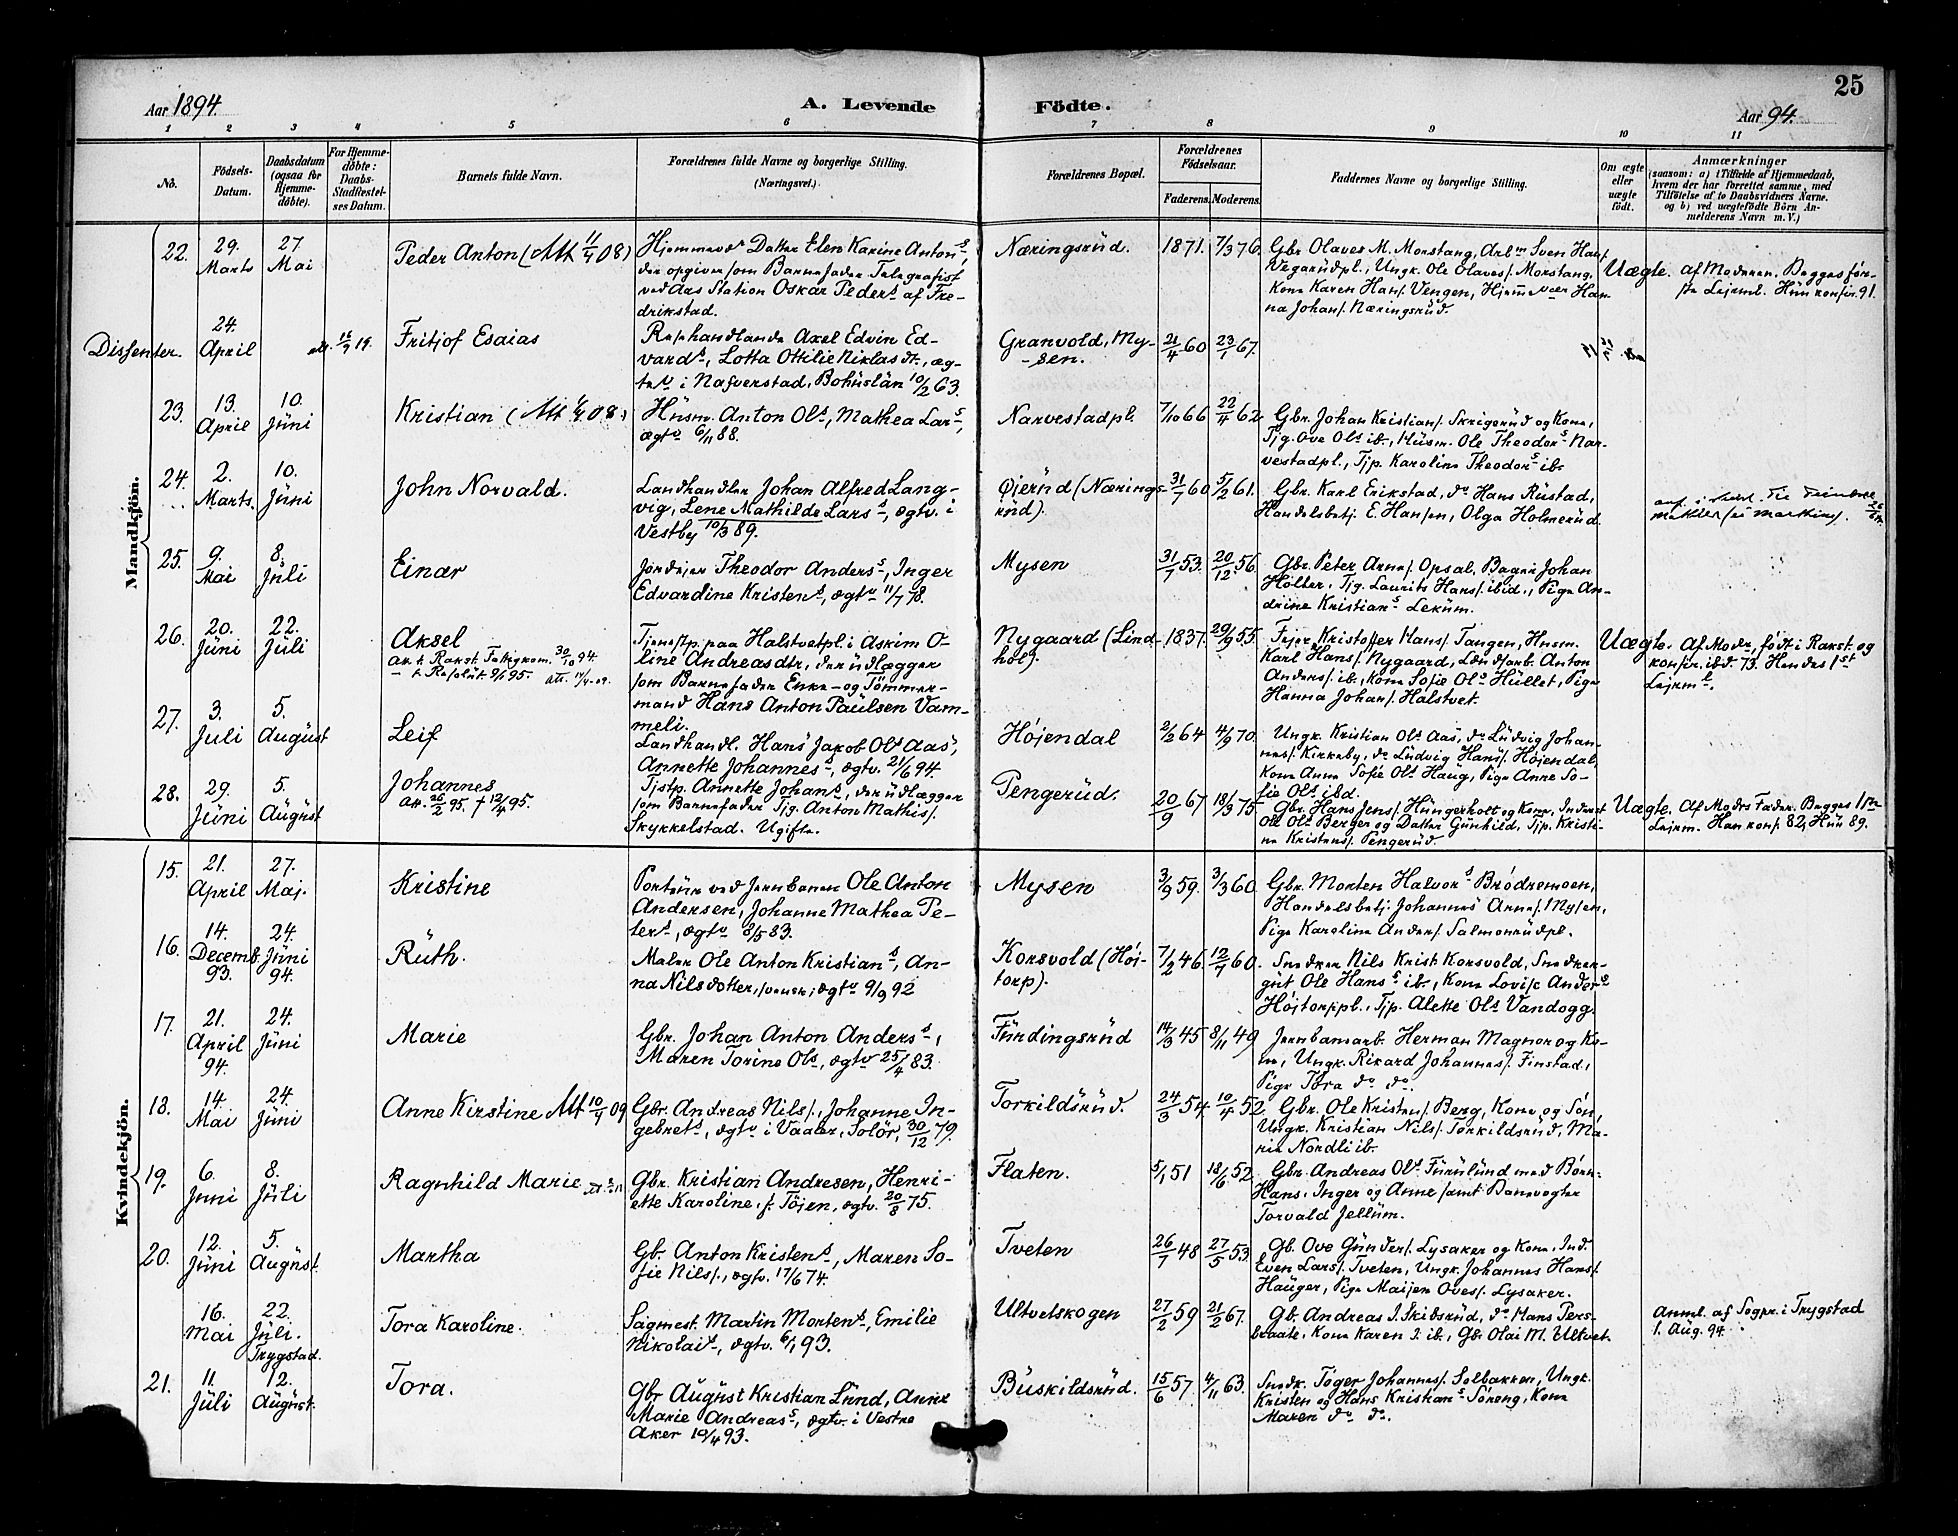 25
Aar 1894.
A. Levende Födte.
Aar 94.
1 2 3 4 5 6 7 8 9 10 11
No.
Födsels-Datum.
Daabsdatum (ogsaa for Hjemme-döbte).
For Hjemme-döbte: Daabs-Stadfæstel-ses Datum.
Barnets fulde Navn.
Forældrenes fulde Navne og borgerlige Stilling. (Næringsvei.)
Forældrenes Bopæl.
Forældrenes Födselsaar.
Faderens. Moderens.
Faddernes Navne og borgerlige Stilling.
Om ægte eller uægte födt.
Anmærkninger
(saasom: a) i Tilfælde af Hjemmedaab, hvem der har forrettet samme, med Tilföielse af to Daabsvidners Navne, og b) ved uægtefödte Börn An-melderens Navn m. V.)
Mandkjön.
22.
29. Marts
27. Mai
Peder Anton (Att 11/4 08)
Hjemmevd Datter Elen Karine Antons,
der opgiver som Barnefader Telegrafist
ved Aas Station Oskar Peders af Fre-
drikstad.
Næringsrüd.
1871. 7/3 76.
Gbr Olaves M. Monstang, Arb. Sven Hans.
Vegarüdpl., Ungk. Ole Olaves. Monstang,
Kone Karen Hans. Vengen, Hjemmevær Han-
na Johans. Næringsrüd.
Uægte.
af Moderen. Begges før-
ste Lejrml. Hün konfir. 91.
Dissenter.
24. April
att. 15/9 19.
Fritjof Esaias
Axel Edvin Ed-
vards, Lotta Ottilie Niklasdt., æg-
tev i Nafverstad, Bohüslän 10/2 63.
Granvold, My-
sen.
21/4 60
23/1 67.
23.
13. April
10. Jüni
Kristian (Att 1/4 08)
Hüsm. Anton Ols, Mathea Lars,
ægtv 6/11 88.
Narvestadpl.
7/10 66
22/4 62
Gbr. Johan Kristians. Skrigerüd og Kone,
Tjg. Ove Ols ib., Hüsm. Ole Theodors Nar-
vestadpl., Tjp. Karoline Theodors ib.
24.
2. Marts.
10. Jüni
John Norvald.
Landhandler Johan Alfred Lang-
vig, Lene Mathilde Lars, ægtv. i
Vestby 10/3 89.
Øjerüd (Nærings-
rüd).
31/7 60
5/2 61.
Gbr. Karl Erikstad, do Hans Rüstad,
Handelsbetj. E. Hansen, Olga Holmerüd.
25.
9. Mai
8. Jüli
Einar
Jordejer Theodor Anders, Inger
Edvardine Kristens, ægtv 11/7 78.
Mysen
31/7 53.
20/12 56
Gbr. Peter Arnes. Opsal, Bager Johan
Holter, Tjg. Laurits Hans. ibid., Pige An-
drine Kristians Leküm.
26.
20. Jüni
22. Jüli
Aksel
Att t. Rakst. Fattigkom. 30/10 94.
att. 17/4-09.
Tjenstp. paa Halstvetpl. i Askim O-
line Andreasdtr, der üdlægger
som Barnefader Enke- og Tømmer-
mand Hans Anton Paülsen Vam-
meli.
Nygaard (Lind-
hol).
1837.
20/9 55.
Fejer Kristoffer Hans. Tangen, Husm.
Karl Hans. Nygaard, Landsarb. Anton
Anders. ib., Kone Sofie Ols Hüllet, Pige
Hanna Johans. Halstvet.
Uægte.
Af Moder, født i Rakst. og
konfir. ibd. 73. Hendes 1st
Lejrml.
27.
3. Juli
5. Augüst
Leif
Landhandl. Hans Jakob Ols Aas,
Annette Johannes, ægtv. 21/6 94.
Højendal
2/2 64
4/9 70.
Ungk. Kristian Ols Aas, do Lüdvig Johan-
nes. Kirkeby, do Lüdvig Hans. Højendal,
Kone Anna Sofie Ols Haüg, Pige Anne So-
fie Ols ibd.
28.
29. Jüni
5. Augüst
Johannes
Att. 26/2 95. † 12/4 95.
Tjstp. Annette Johans, der üdlægger
som Barnefader Tjg. Anton Mathis.
Skykkelstad. Ugifte.
Pengerüd.
20/9 67
18/3 75.
Gbr. Hans Jens. Hüngerholt og Kone, Inderst
Ole Ols Berger og Datter Günhild, Tjp. Kristi-
ne Kristens. Pengerüd.
Uægte.
Af Mods Fader. Begges 1ste
Lejrm. Han konf. 82, Hün 89.
Kvindekjön.
15.
21. April
27. Maj.
Kristine
Portør ved Jernbanen Ole Anton
Andersen, Johanne Mathea Pe-
ters, ægtv 8/5 83.
Mysen
3/9 59.
3/3 60
Gbr. Morten Halvors Brødremoen,
Handelsbetj. Johannes Arnes. Mysen,
Pige Karoline Anders. Salmonrüdpl.
16.
14. Decemb. 93.
24. Jüni 94.
Rüth.
Maler Ole Anton Kristians, An-
na Nilsdotter, svensk; ægtv 9/9 92
Korsvold (Høj-
torp).
7/2 46
12/7 60.
Snedker Nils Krist. Korsvold, Snedker-
güt Ole Hans ib., Kone Lovise Anders
Højtorppl., Tjp. Alette Ols Vandogg.
17.
21. April 94.
24. Jüni
Marie
Gbr. Johan Anton Anders,
Maren Torine Ols, ægtv 25/4 83.
Fürdingsrüd
14/3 45
8/11 49
Jernbanearb. Herman Magnor og Ko-
ne, Ungk. Rikard Johannes. Finstad,
Pige Tora do do.
18.
14. Mai
24. Jüni
Anne Kirstine Att 10/4 09
Gbr. Andreas Nils., Johanne In-
gebrets, ægtv i Vaaler, Solör, 30/12 79.
Torkildsrüd.
24/3 54
10/4 52
Gbr. Ole Kristens. Berg, Kone og Søn,
Ungk. Kristian Nils. Torkildsrüd, Ma-
rie Nordli ib.
19.
6. Juni
8. Jüli
Ragnhild Marie
Gbr. Kristian Andresen, Henri-
ette Karoline, f. Töjen, ægtv. 20/8 75.
Flaten.
5/1 51
18/6 52
Gbr. Andreas Ols Fürülünd med Børn
Hans, Inger og Anne samt Banevogter
Torvald Jellüm.
20.
12. Jüni
5. Augüst.
Martha
Gb. Anton Kristens, Maren So-
fie Nils., ægtv. 17/6 74.
Tveten
26/7 48
27/5 53
Gb. Ove Günders. Lysaker og Kone, Ind.
Even Lars. Tveten, Ungk. Johannes Hans.
Haüger, Pige Maijen Oves. Lysaker.
16. Mai
22. Jüli. Trygstad.
Tora Karoline.
Sagmest. Martin Mortens, Emilie
Nikolais, ægtv. 6/1 93.
Ultvetskogen
27/2 59
21/2 67.
Gb. Andreas J. Skibsrüd, do Hans Pers-
braate, Kone Karen J. ib., Gb. Olai M. Ultvet.
Anml. af Sogpr. i Trygstad
1. Aug. 94.
21.
11. Jüli
12. Augüst.
Tora.
Gbr Augüst Kristian Lünd, Anne
Marie Andreas, ægtv. i Vestre
Aker 10/4 93.
Büskildsrüd.
15/6 57.
4/11 63.
Snedk. Töger Johannes. Solbakken, Ungk.
Kristen og Hans Kristians Søreng, Kone
Maren do do.